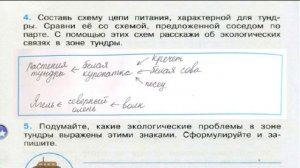 4. Составь схему цепи питания, характерной для тунд-
ры. Сравни её со схемой, предложенной соседом по
парте. С помощью этих схем расскажи об экологических
связях в зоне тундры.
кречет
Растения тундры белая куропатка белая сова
песец
Ягель северный олень волк
5. Подумайте, какие экологические проблемы в зоне
тундры выражены этими знаками. Сформулируйте и за-
пишите.